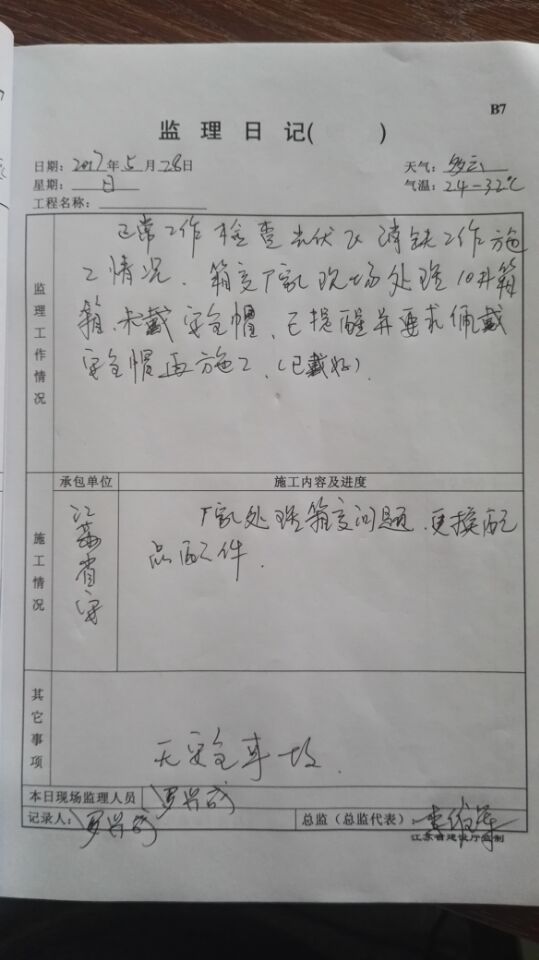 B7
监 理 日 记( )
日期: 2017年5月28日
天气: 多云
星期: 日
气温: 24-32℃
工程名称:
监理工作情况
正常工作 检查光伏及消缺工作施
工情况. 箱变厂家现场处理10#箱
箱.未戴安全帽,已提醒并要求佩戴
安全帽再施工.(已戴好).
承包单位
施工内容及进度
施工情况
江苏省安
厂家处理箱变问题.更换配
品配件.
其它事项
无安全事故.
本日现场监理人员 罗兴成
记录人: 罗兴成
总监(总监代表):
江苏省建设厅监制